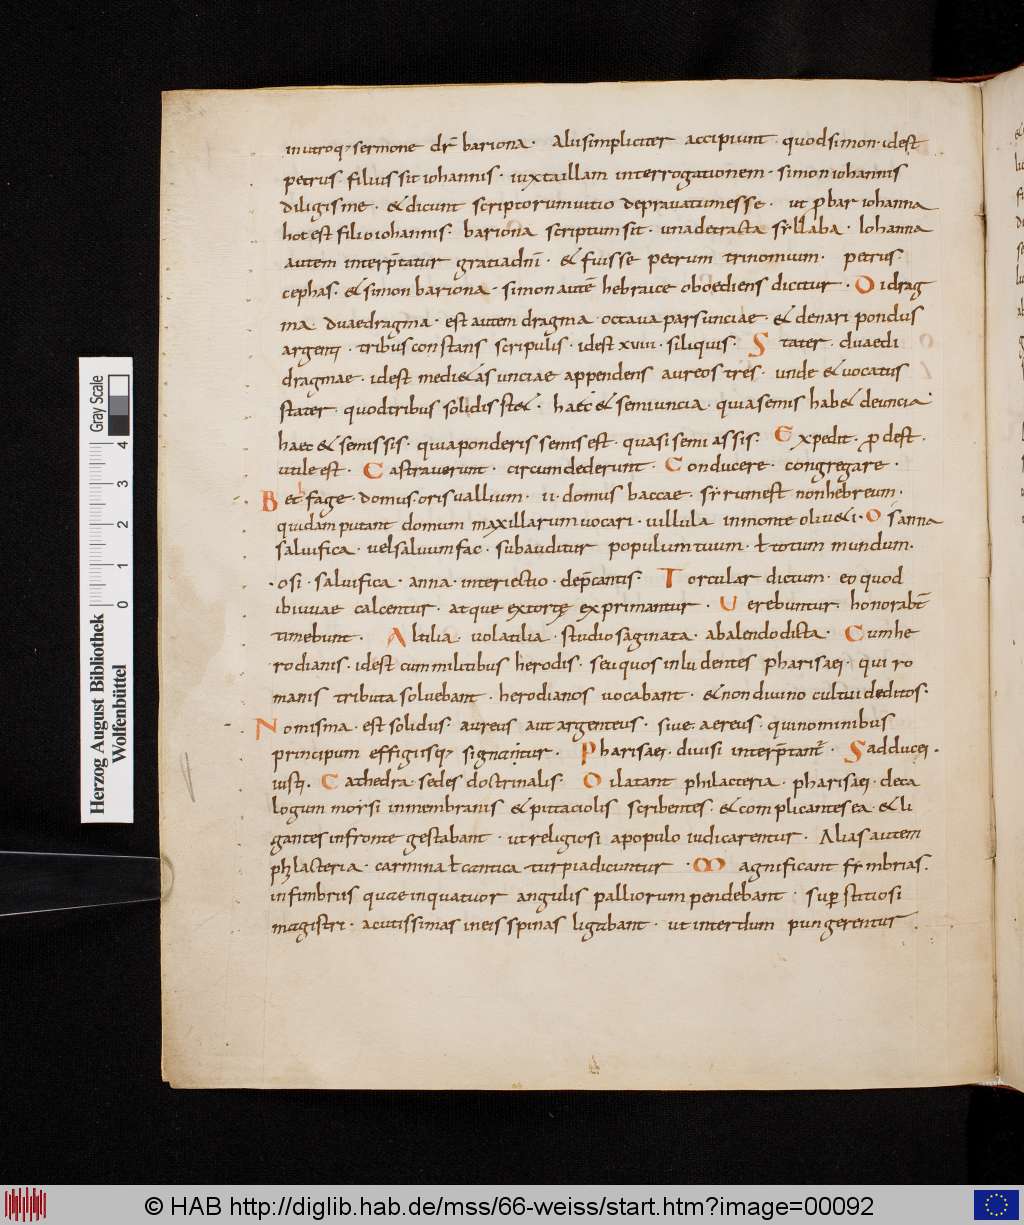 inutroq; sermone dr̄ bariona · Alii simpliciter accipiunt · quod simon · id est
petrus · filius sit iohannis · iuxta illam interrogationem · simon iohannis
diligis me · & dicunt scriptorum uitio deprauatum esse · ut p bar iohanna
hoc est filio iohannis · bariona scriptum sit · una detracta syllaba · Iohanna
autem interp̄tatur gratia dn̄i · & fuisse petrum trinomium · petrus ·
cephas · & simon bariona · simon autē hebraice oboediens dicitur · Didrag
ma · duae dragma · est autem dragma octaua pars unciae · & denari pondus
argenti · tribus constans scripulis · id est xuiii · siliquis · Stater · duae di
dragmae · id est medi&as unciae appendens aureos tres · unde & uocatus
stater · quod tribus solidis st& · haec & semiuncia · quia semis hab& de uncia
haec & semissis · quia ponderis semis est · quasi semi assis · Expedit · pdest ·
utile est · Castrauerunt · circumdederunt · Conducere · congregare ·
Betfage · domus oris uallium · ii · domus baccae · syrum est non hebreum ·
quidam putant domum maxillarum uocari · uillula in monte oliu&i · Osanna
saluifica · uel saluum fac · subauditur populum tuum · ł totum mundum ·
osi · saluifica · anna · interiectio · dep̄cantis · Torcular dictum · eo quod
ibi uuae calcentur · atque extortę exprimantur · Uerebuntur · honorabt̄
timebunt · Altilia · uolatilia · studio saginata · ab alendo dicta · Cum he
rodianis · id est cum militibus herodis · seu quos inludentes pharisaei · qui ro
manis tributa soluebant · herodianos uocabant · & non diuino cultui deditos ·
Nomisma · est solidus · aureus aut argenteus · siue · aereus · qui nominibus
principum effigiisq; signantur · Pharisaei · diuisi interp̄tant̄ · Sadducei ·
iusti · Cathedra · sedes doctrinalis · Dilatant philacteria · pharisaei · deca
logum moysi in membranis & pittaciolis scribentes · & complicantes ea · & li
gantes in fronte gestabant · ut religiosi a populo iudicarentur · Alias autem
phylacteria · carmina ł cantica turpia dicuntur · Magnificant fymbrias ·
in fimbriis quae in quatuor angulis palliorum pendebant · sup stitiosi
magistri · acutissimas in eis spinas ligabant · ut interdum pungerentur ·
Herzog August Bibliothek
Wolfenbüttel
0 1 2 3 4
Gray Scale
© HAB http://diglib.hab.de/mss/66-weiss/start.htm?image=00092